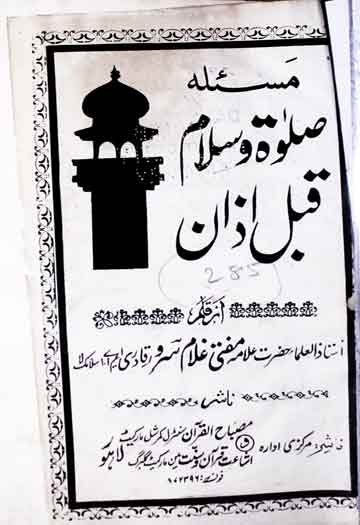 مسئلہ
صلوٰۃ و سلام
قبل اذان
285
از قلم
استاذ العلماء حضرت علامہ مفتی غلام سرور قادری ایم اے اسلامک لاء
ناشر
مصباح القرآن سنٹرل کمرشل مارکیٹ
ناشر: مرکزی ادارہ اشاعت قرآن و سنت مین مارکیٹ گلبرگ لاہور
فون: ۸۷۲۳۹۶